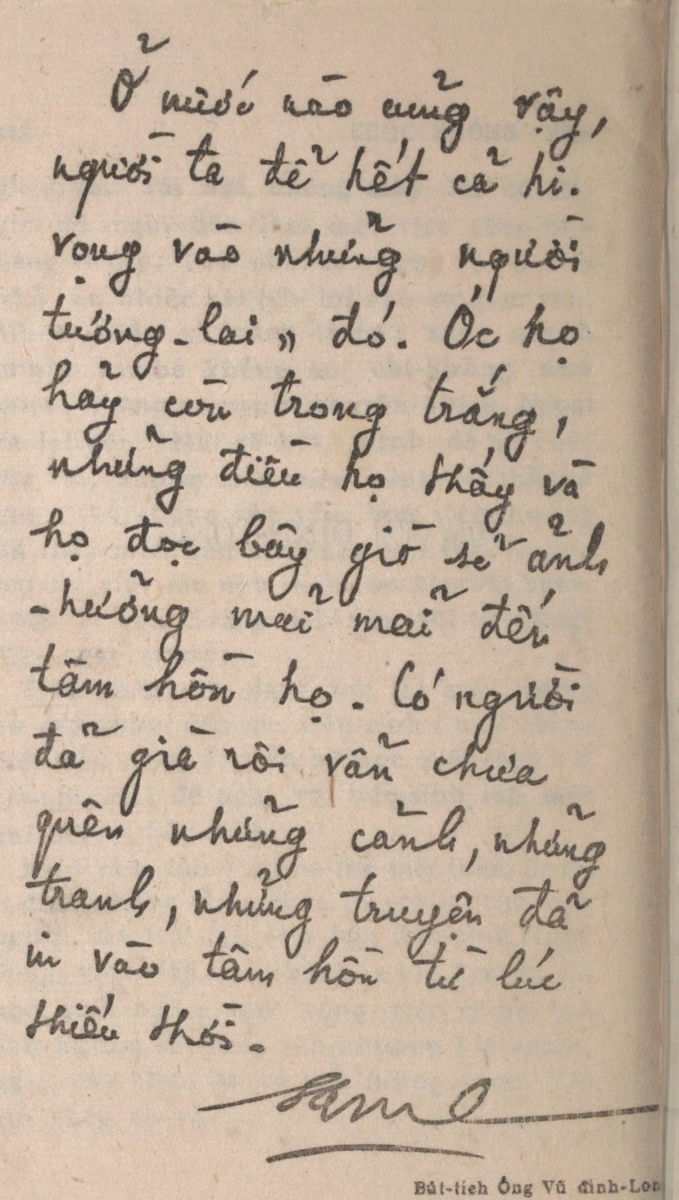 Ở nước nào cũng vậy,
người ta để hết cả hi-
vọng vào những "người
tương-lai" đó. Óc họ
hãy còn trong trắng,
những điều họ thấy và
họ đọc bây giờ sẽ ảnh
-hưởng mãi mãi đến
tâm hồn họ. Có người
đã già rồi vẫn chưa
quên những cảnh, những
tranh, những truyện đã
in vào tâm hồn từ lúc
thiếu thời.
Bút-tích Ông Vũ đình-Lon